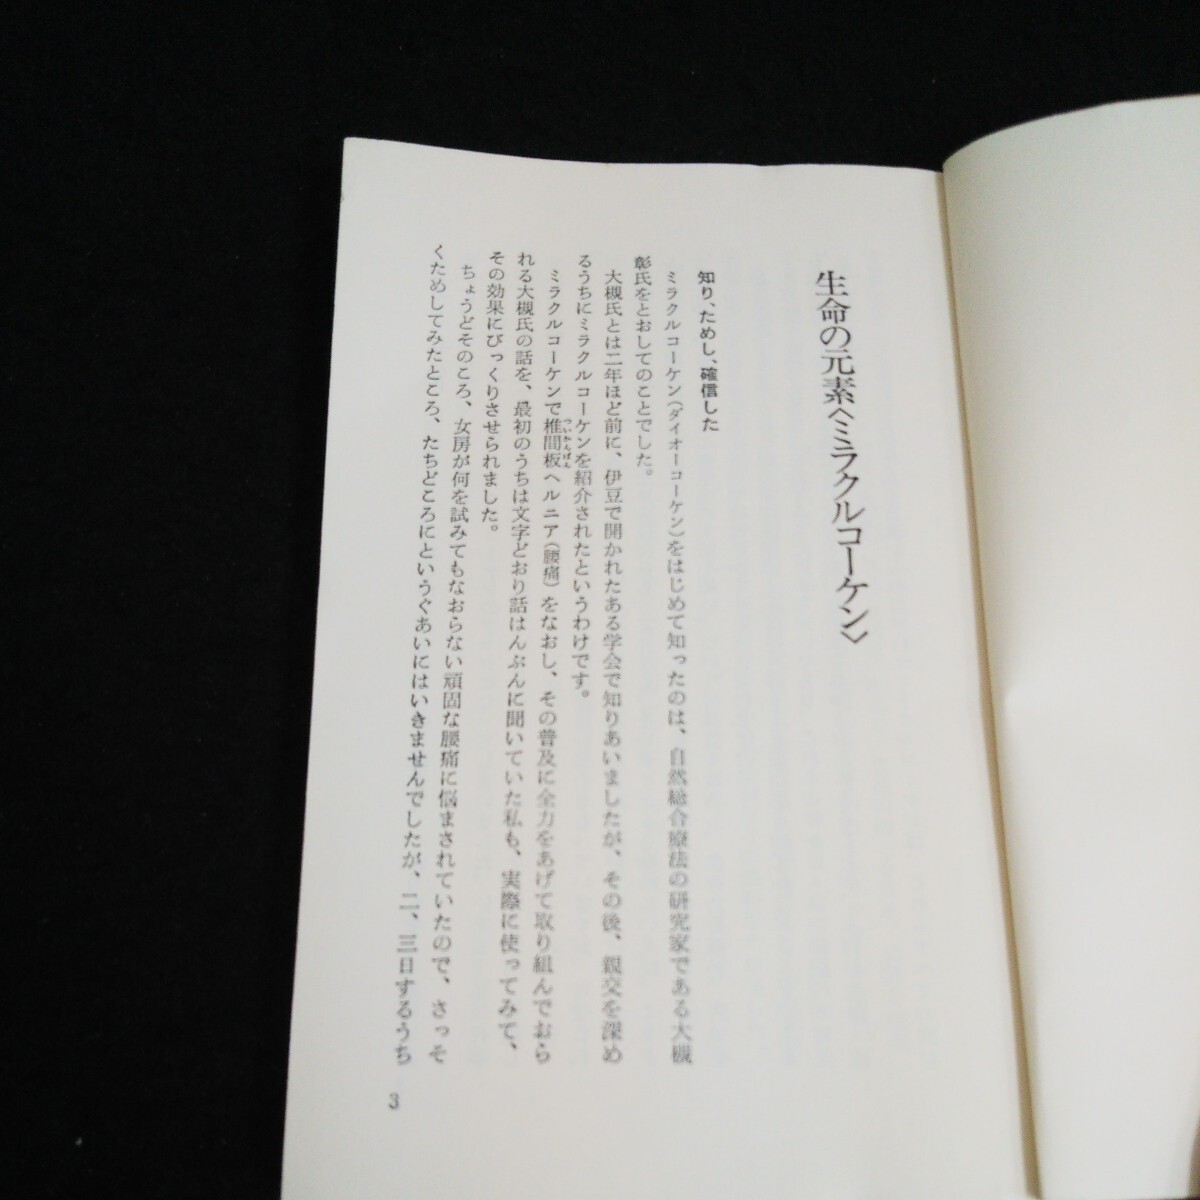 生命の元素〈ミラクルコーケン〉
知り、ためし、確信した
ミラクルコーケン（ダイオーコーケン）をはじめて知ったのは、自然総合療法の研究家である大槻
彰氏をとおしてのことでした。
大槻氏とは二年ほど前に、伊豆で開かれたある学会で知りあいましたが、その後、親交を深め
るうちにミラクルコーケンを紹介されたというわけです。
ミラクルコーケンで椎間板ヘルニア（腰痛）をなおし、その普及に全力をあげて取り組んでおら
れる大槻氏の話を、最初のうちは文字どおり話はんぶんに聞いていた私も、実際に使ってみて、
その効果にびっくりさせられました。
ちょうどそのころ、女房が何を試みてもなおらない頑固な腰痛に悩まされていたので、さっそ
くためしてみたところ、たちどころにというぐあいにはいきませんでしたが、二、三日するうち
3